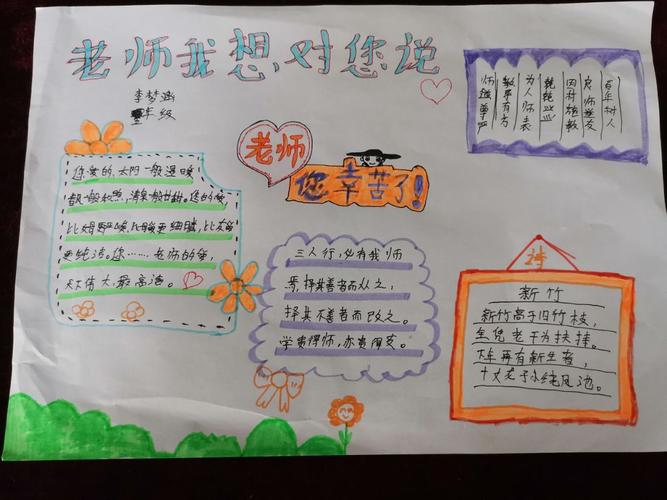 老师我想对您说
李梦涵
年级
百年树人
良师益友
因材施教
兢兢业业
为人师表
教导有方
师道尊严
老师
您辛苦了!
您爱的,太阳一般温暖
春风般和煦,清泉般甘甜。您的爱,
比严父更细腻,比
更纯洁。您……老师的爱,
天下伟大,最高洁。
三人行,必有我师
焉,择其善者而从之,
择其不善者而改之。
学贵得师,亦贵得友。
诗
新竹
新竹高于旧竹枝,
全凭老干为扶持。
下年再有新生者,
十丈龙孙绕凤池。